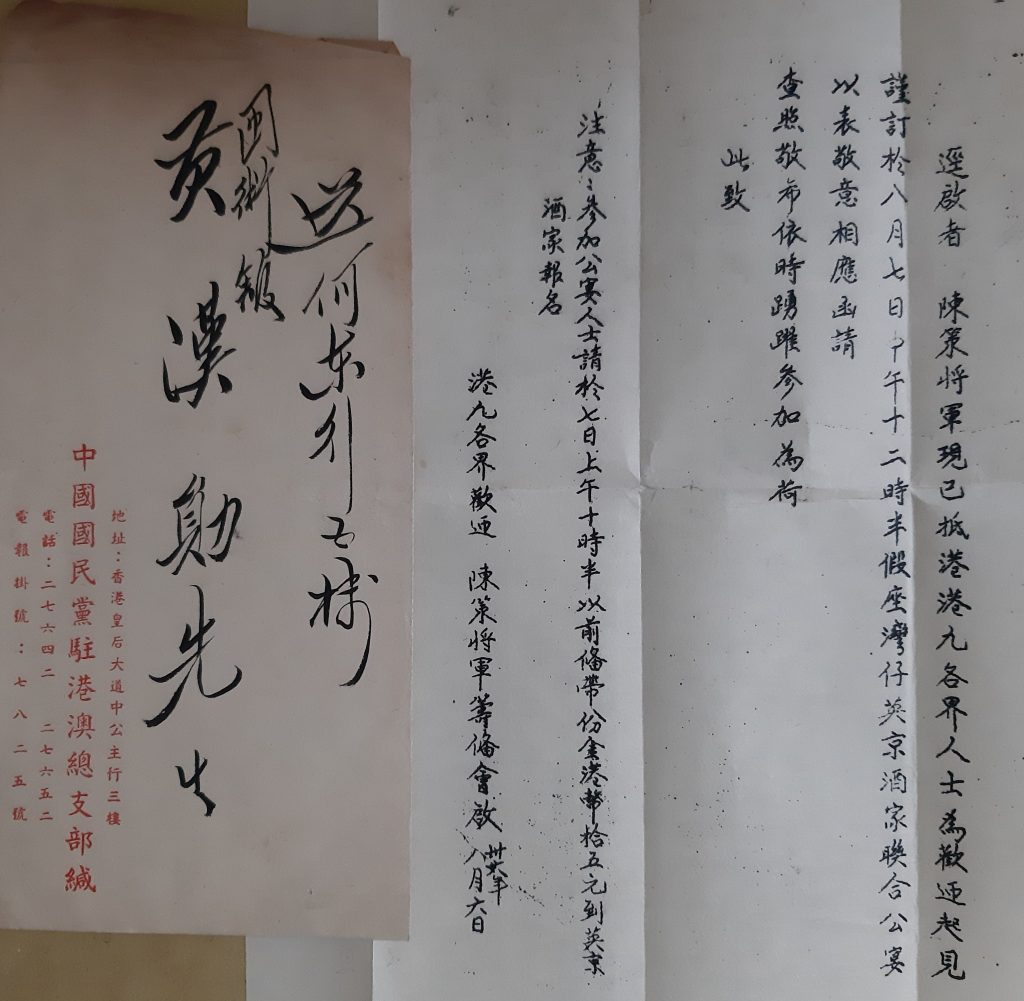 逕啟者　陳策将軍現已抵港港九各界人士為歡迎起見
謹訂於八月七日中午十二時半假座灣仔英京酒家聯合公宴
以表敬意相應函請
查照敬希依時踴躍參加為荷
此致
注意：參加公宴人士請於七日上午十時半以前備帶份金港幣拾五元到英京
酒家報名
港九各界歡迎　陳策将軍籌備會啟
卅六年
八月六日
送何東行七楼
國術館
黄漢勛先生
地址：香港皇后大道中公主行三樓
中國國民黨駐港澳總支部緘
電話：二七六四二　二七六五二
電報掛號：七八二五號